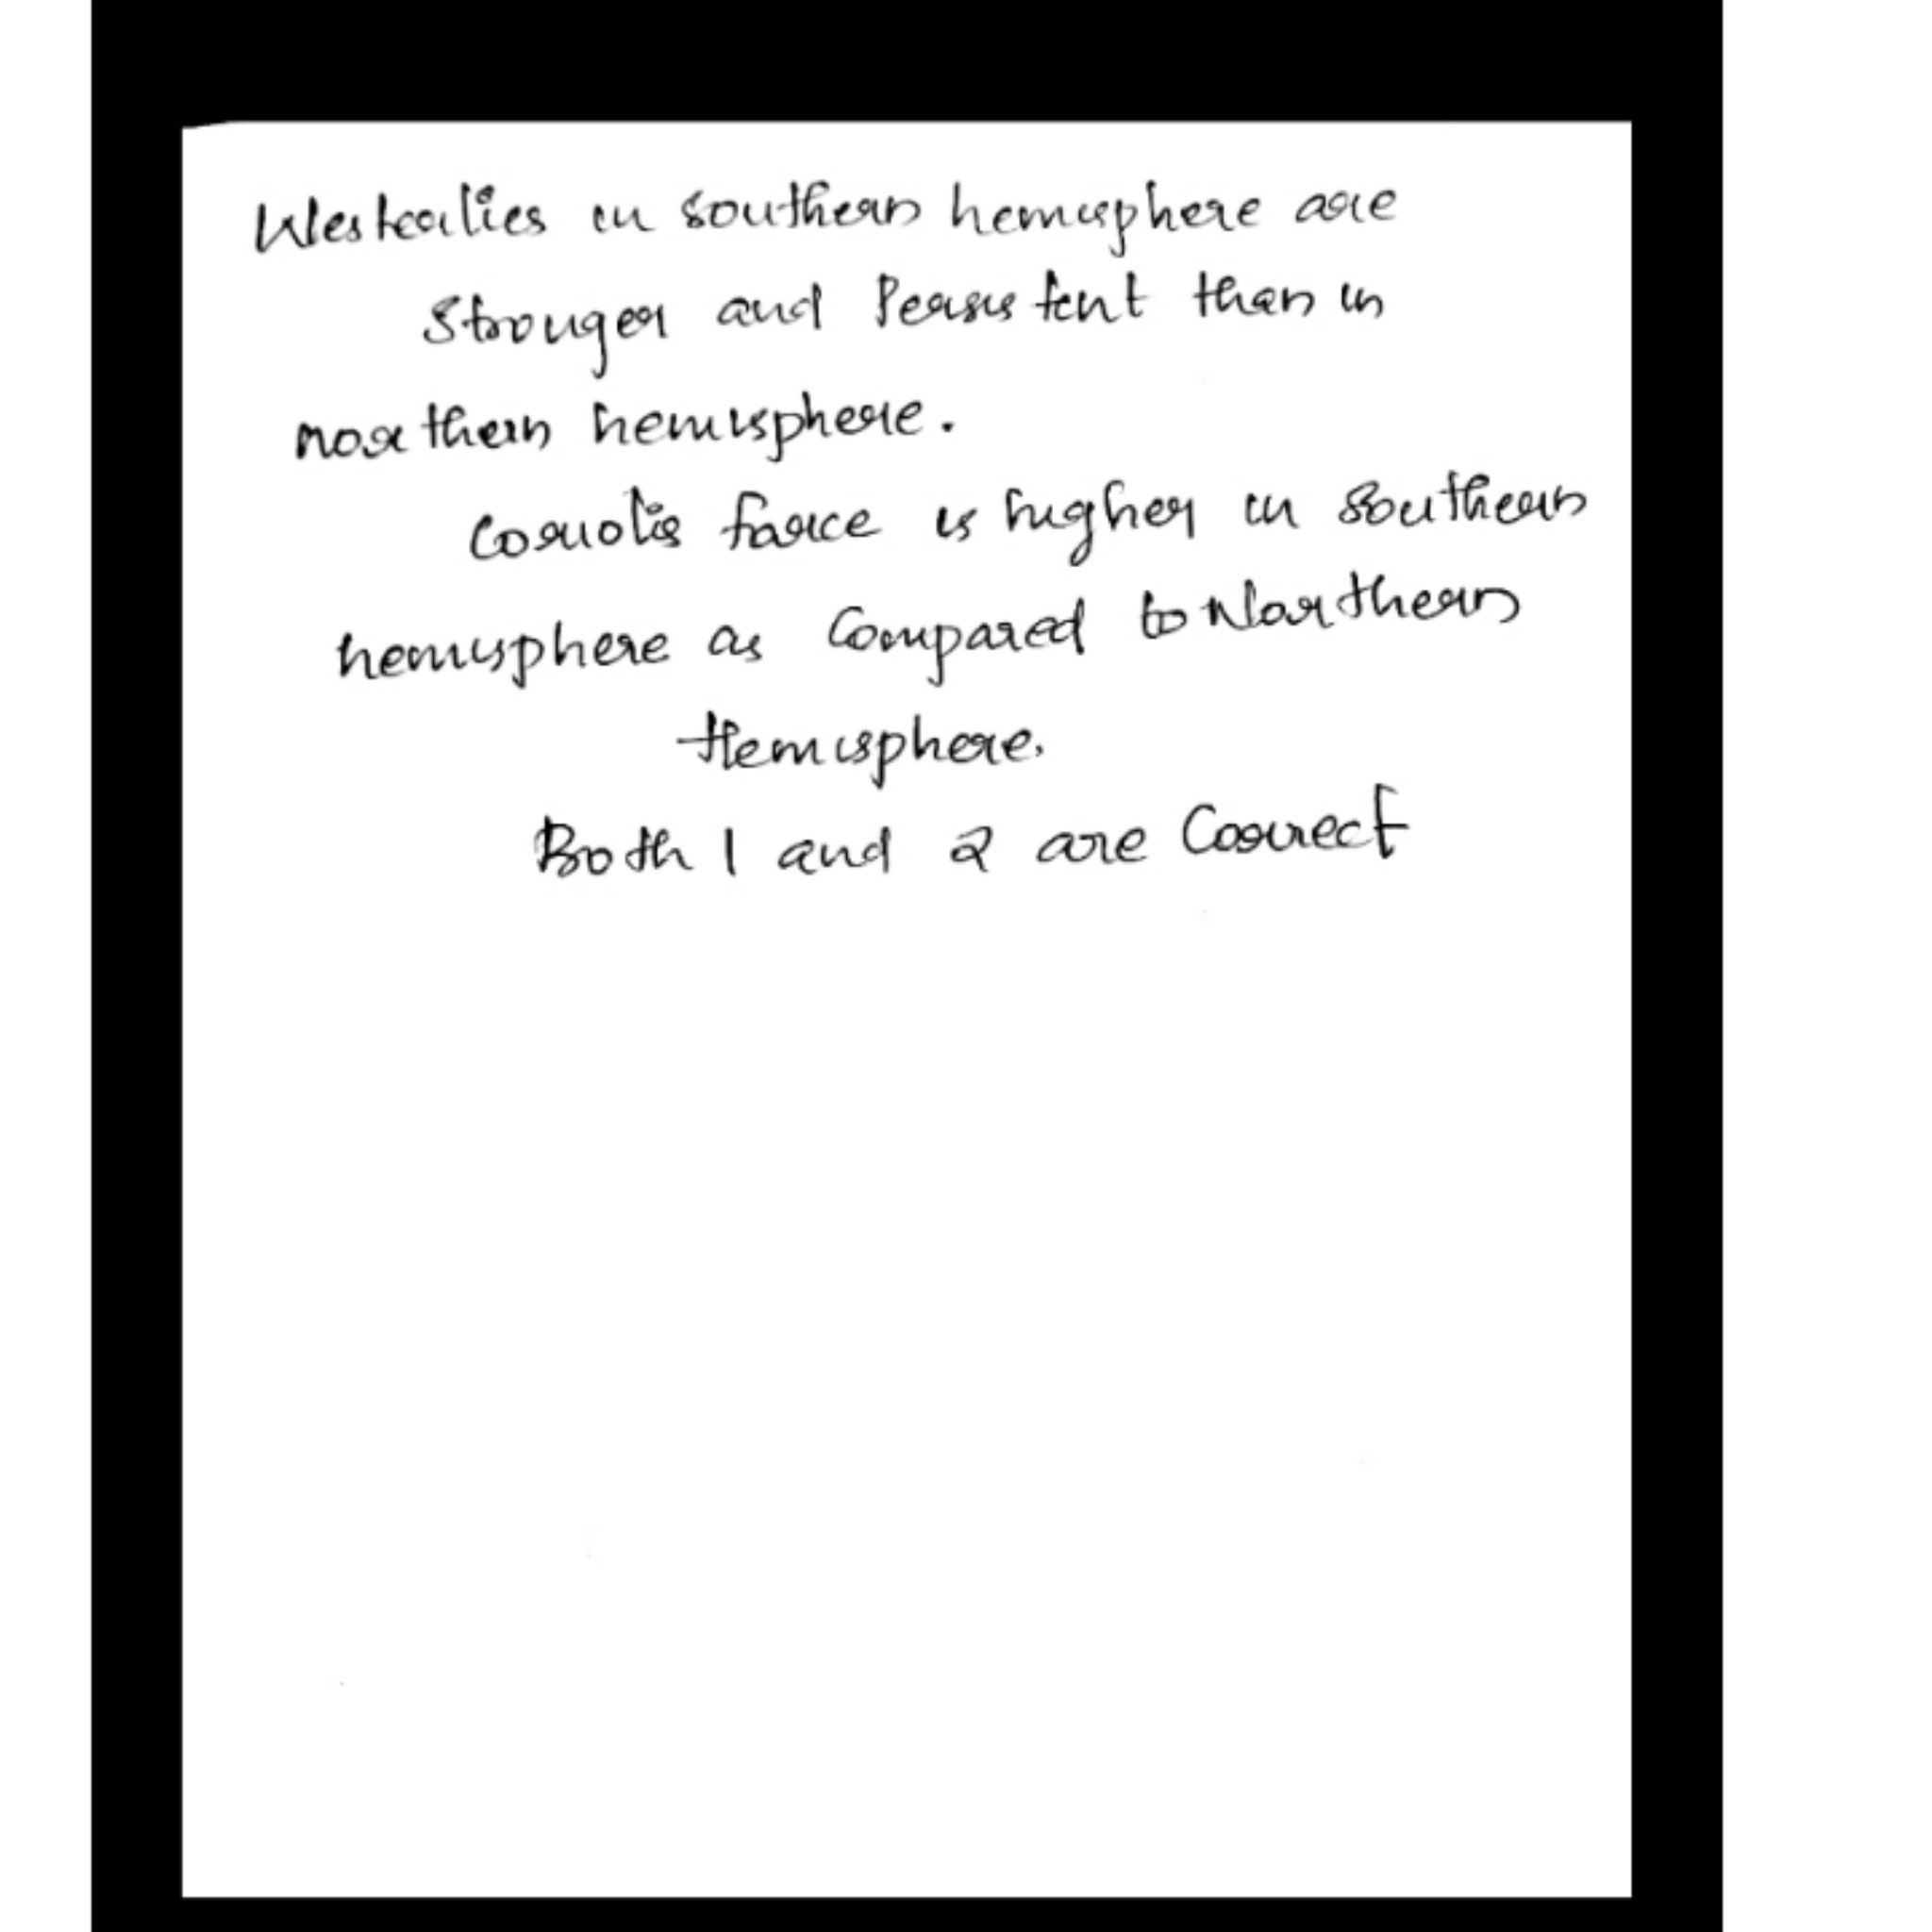 Westerlies in southern hemisphere are
Stronger and Persistent than in
northern hemisphere.
Coriolis force is higher in southern
hemisphere as Compared to Northern
Hemisphere.
Both 1 and 2 are Correct